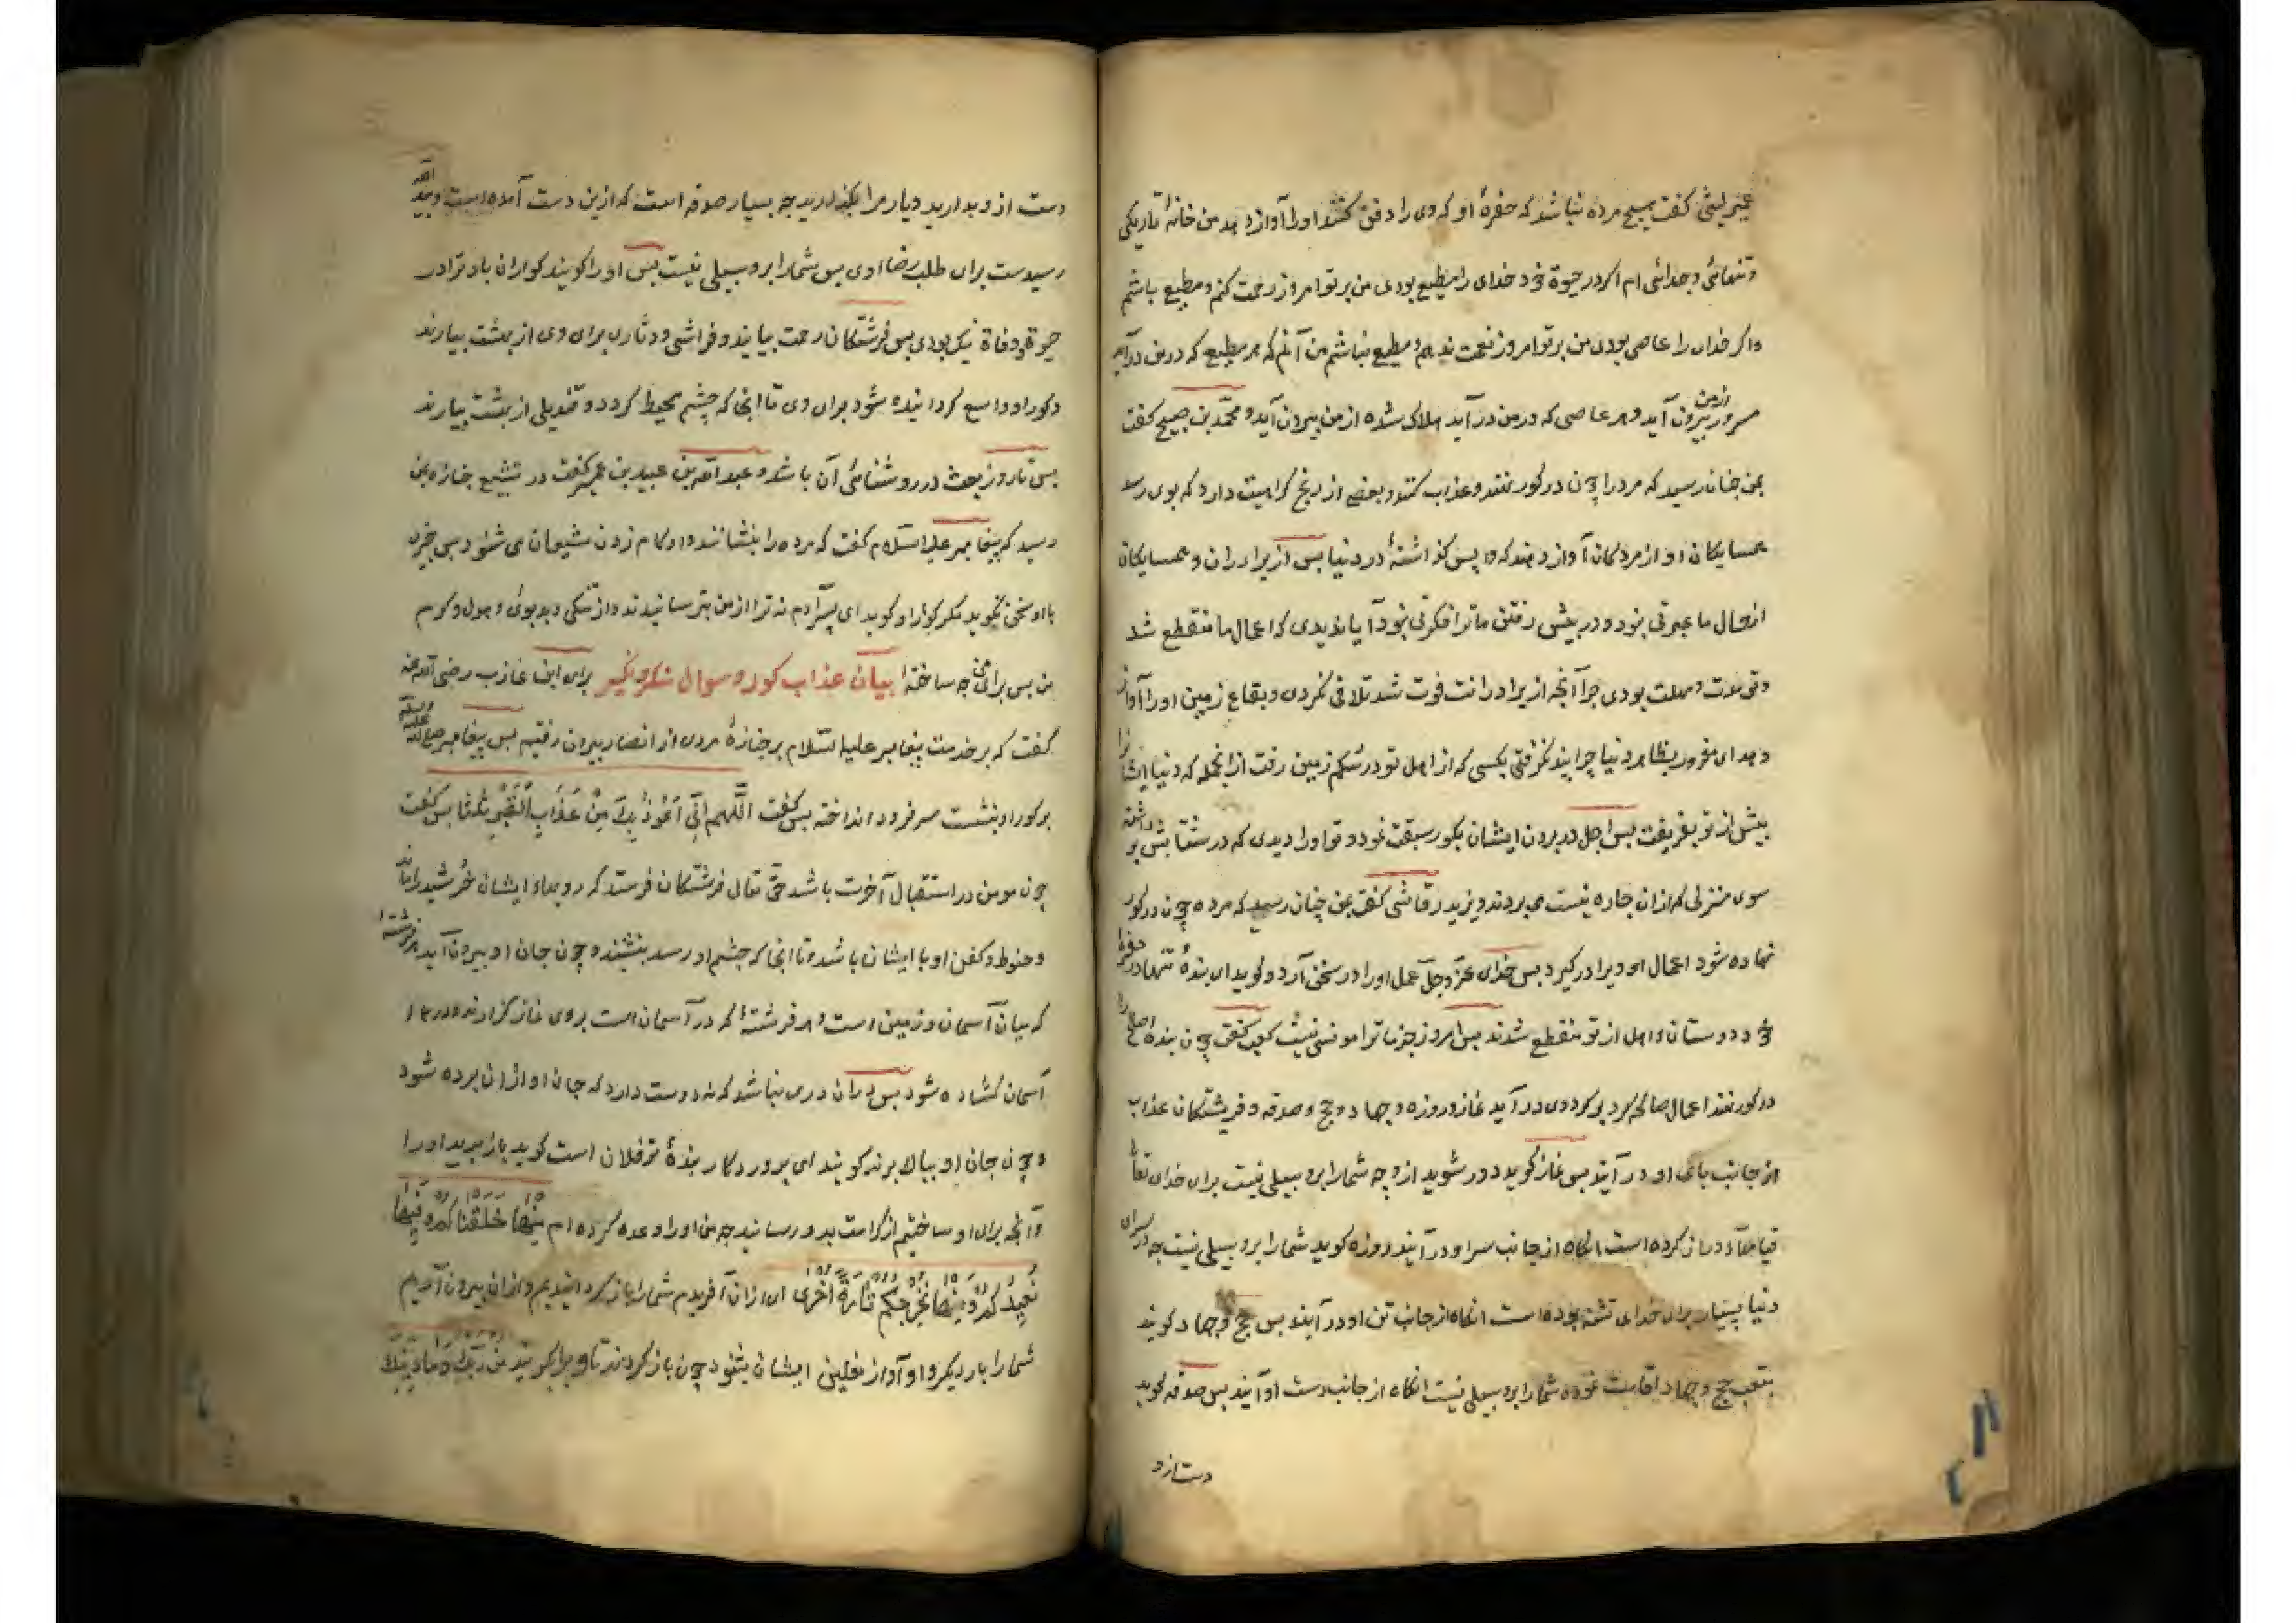 عمیر لیثی گفت هیچ مرده نباشد که حفرهٔ او که وی را دفن کنند او را آواز دهد من خانهٔ تاریکی
و تنهائی و جدائی ام اکر در حیوة خود خدای را مطیع بودی من بر تو امروز رحمت کنم و مطیع باشم
و اکر خدای را عاصی بودی من بر تو امروز نعمت ندهم و مطیع نباشم من آنم که هر مطیع که در من درآید
مسرور از من بیرون آید و هر عاصی که در من درآید هلاک شده از من بیرون آید و محمد بن صبیح کفت
بمن چنان رسید که مرد را چون در کور نهند و عذاب کنند و بعضی از رنج کراهیت دارد که بوی رسد
همسایکان او از مردکان آواز دهند که وا پس کذاشتهٔ در دنیا پس از برادران و همسایکان
از حال ما عبرتی نبود و در پیش رفتن ما ترا فکرتی نبود آیا ندیدی که اعمال ما منقطع شد
و تو مهلت بودی چرا آنچه از برادرانت فوت شد تلافی نکردی و بقاع زمین او را آواز
دهد ای مغرور بظاهر دنیا چرا پند نکرفتی بکسی که از اهل تو در شکم زمین رفت از انجمله که دنیا ایشانرا
پیش از تو بفریفت پس اجل در بردن ایشان بکور سبقت نمود و تو او را دیدی که در شتابش برداشته
سوی منزلی که از ان چاره نیست می بردند و یزید رقاشی کفت بمن چنان رسید که مرده چون در کور
نهاده شود اعمال او ویرا در کیرد پس خدای عز و جل عمل او را در سخن آرد و کوید ای بندهٔ تنها در حفرهٔ
خود دوستان و اهل از تو منقطع شدند پس امروز جز ما ترا مونسی نیست کعب کفت چون بنده صالح را
در کور نهند اعمال صالحه کرد بر کرد وی در آید نماز و روزه و جهاد و حج و صدقه و فریشتکان عذاب
از جانب پای او در آیند پس نماز کوید دور شوید از و چه شما را برو سبیلی نیست برای خدای تعالی
قیامها دراز کرده است انکاه از جانب سر او در آیند روزه کوید شما را برو سبیلی نیست چه در سرای
دنیا بسیار برای خدای تشنه بوده است انکاه از جانب تن او در آیند پس حج و جهاد کویند
بتعب حج و جهاد اقامت نموده شما را برو سبیلی نیست انکاه از جانب دست او آیند پس صدقه کوید
دست از و
دست از و بدارید و یار مرا بگذارید چه بسیار صدقه است که از ین دست آمده است و بید الله
رسیدست برای طلب رضاء وی پس شما را برو سبیلی نیست پس او را کویند کواران باد ترا در
حیوة و وفاة نیک بودی پس فرشتکان رحمت بیایند و فراشی و دثاری برای وی از بهشت بیارند
و کور او واسع کردانیده شود برای وی تا انجا که چشم محیط کردد و قندیلی از بهشت بیارند
پس تا روز بعث در روشنائی آن باشد و عبد الله بن عبید بن عمیر کفت در تشییع جنازه بمن
رسید که پیغامبر علیه السلام کفت که مرده را بنشانند و او کام زدن مشیعان می شنود پس چیزی
با او سخن نکوید مکر کور او کوید ای پسر آدم نه ترا از من بترسانیدند و از تنکی و بدبوئی و هول و کرم
من پس برای من چه ساختهٔ بیان عذاب کور و سوال منکر و نکیر براء ابن عازب رضی الله عنه
کفت که بر خدمت پیغامبر علیه السلام بر جنازهٔ مردی از انصار بیرون رفتیم پس پیغامبر صلی الله علیه وسلم
بر کور او بنشست سر فرود انداخته پس کفت اللَّهم اِنِّی اَعُوْذُ بِكَ مِنْ عَذَابِ الْقَبْرِ ثلثا پس کفت
چون مومن در استقبال آخرت باشد حق تعالی فرشتکان فرستد که رویهاء ایشان خرشید را ماند
و حنوط و کفن او با ایشان باشد و تا انجا که چشم او رسد بنشینند و چون جان او بیرون آید هر فرشتهٔ
که میان آسمان و زمین است و هر فرشتهٔ که در آسمان است بر وی نماز کزارند و درهاء
آسمان کشاده شود پس از ان دری نباشد که نه دوست دارد که جان او از ان برده شود
و چون جان او ببالا برند کویند ای پروردکار بندهٔ تو فلان است کوید باز برید او را
و آنچه برای او ساختیم از کرامت بدو رسانید چه من او را وعده کرده ام مِنْهَا خَلَقْنَاكُمْ وَفِيْهَا
نُعِيْدُكُمْ وَمِنْهَا نُخْرِجُكُمْ تَارَةً اُخْرَى ای از ان آفریدم شما را باز کردانیدیم و از ان بیرون آریم
شما را بار دیکر و او آواز نعلین ایشان بشنود چون باز کردند تا ویرا کویند مَنْ رَبُّكَ وَمَا دِيْنُكَ